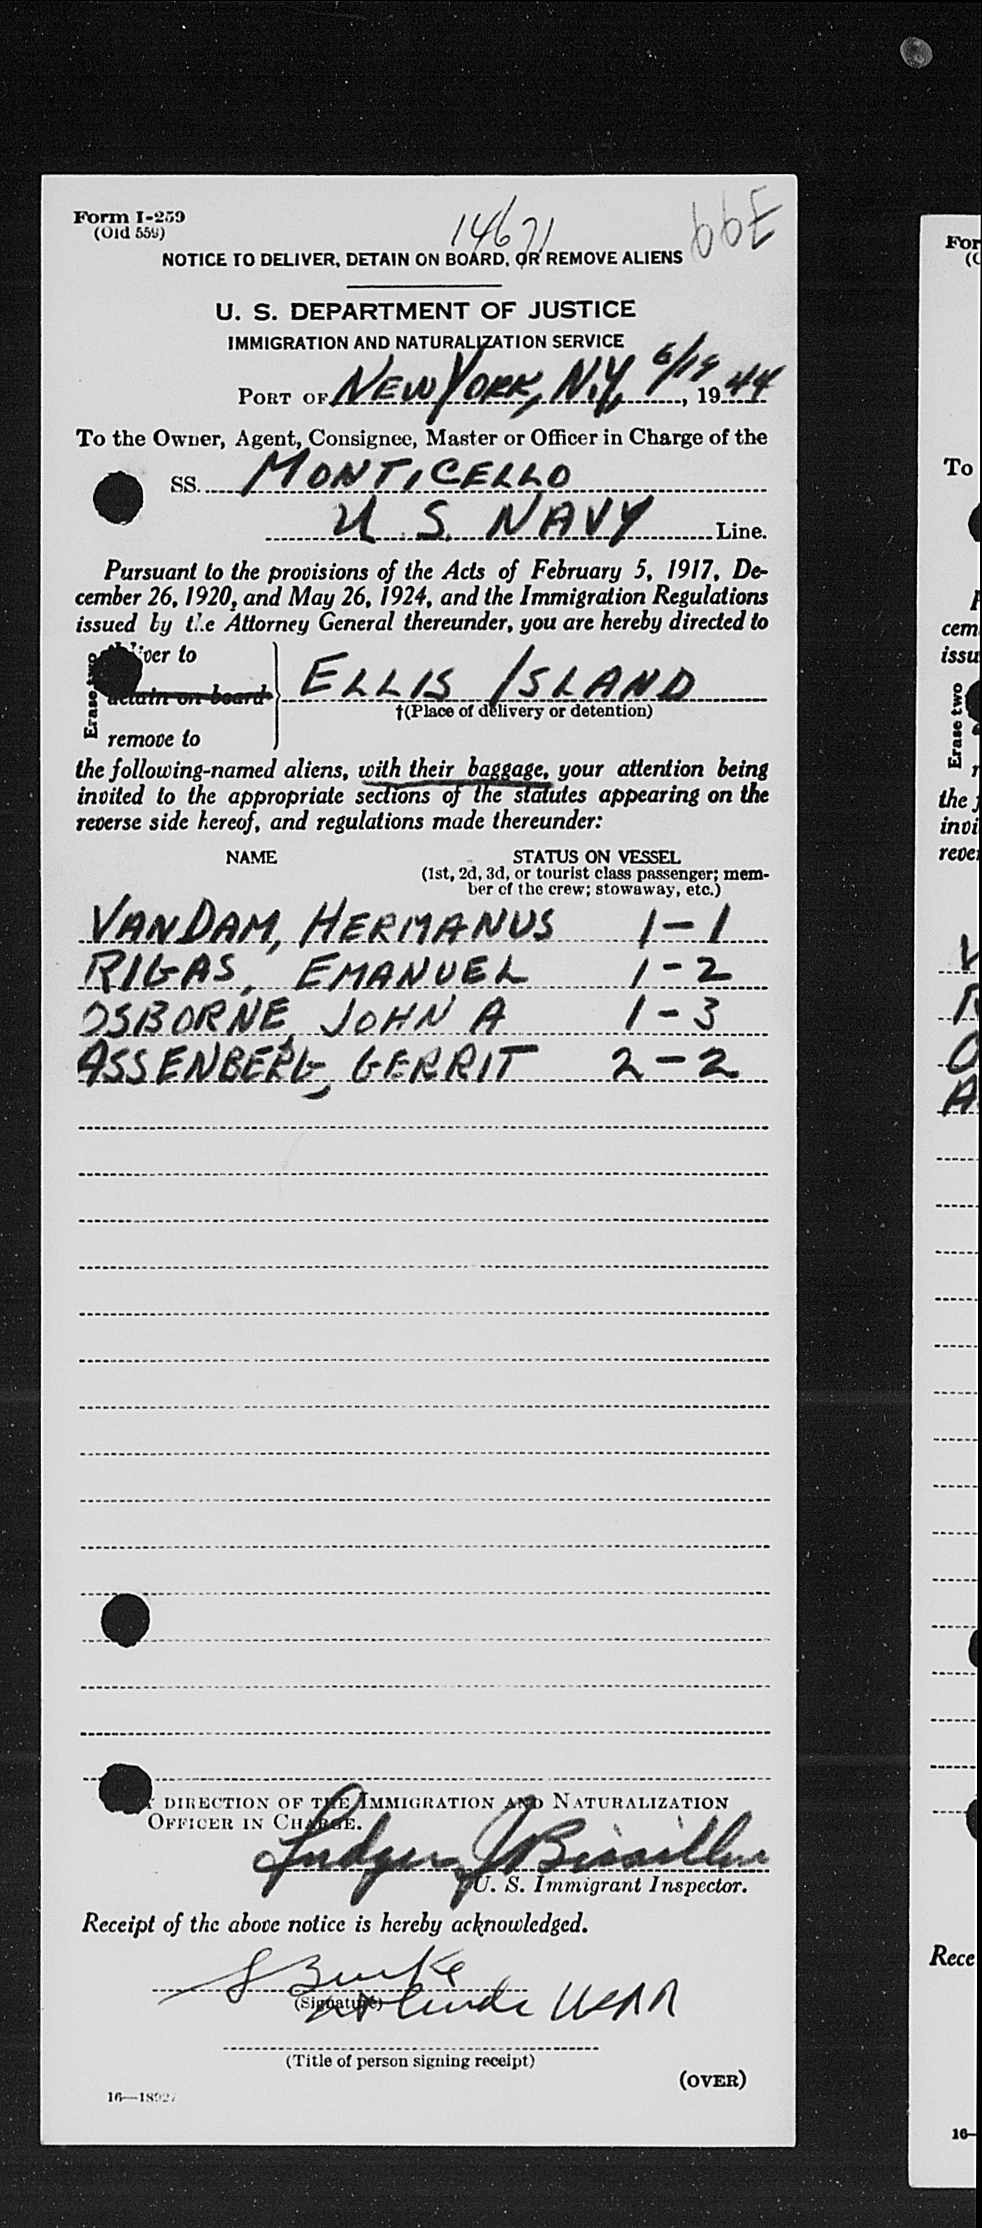 Form I-259
(Old 559)
14671
66E
NOTICE TO DELIVER, DETAIN ON BOARD, OR REMOVE ALIENS
U. S. DEPARTMENT OF JUSTICE
IMMIGRATION AND NATURALIZATION SERVICE
PORT OF NEW YORK, N.Y. 6/19, 1944
To the Owner, Agent, Consignee, Master or Officer in Charge of the
SS. MONTICELLO
U S. NAVY Line.
Pursuant to the provisions of the Acts of February 5, 1917, De-
cember 26, 1920, and May 26, 1924, and the Immigration Regulations
issued by the Attorney General thereunder, you are hereby directed to
Erase two
iver to
detain on board
remove to
ELLIS ISLAND
†(Place of delivery or detention)
the following-named aliens, with their baggage, your attention being
invited to the appropriate sections of the statutes appearing on the
reverse side hereof, and regulations made thereunder:
NAME STATUS ON VESSEL
(1st, 2d, 3d, or tourist class passenger; mem-
ber of the crew; stowaway, etc.)
VANDAM, HERMANUS 1-1
RIGAS, EMANUEL 1-2
OSBORNE, JOHN A 1-3
ASSENBERG, GERRIT 2-2
DIRECTION OF THE IMMIGRATION AND NATURALIZATION
OFFICER IN CHARGE.
U. S. Immigrant Inspector.
Receipt of the above notice is hereby acknowledged.
S Burke
(Signature)
(Title of person signing receipt)
(OVER)
16—18927
For
(O
To
cem
issu
Erase two
the f
invi
reve
V
R
O
A
Rece
16—